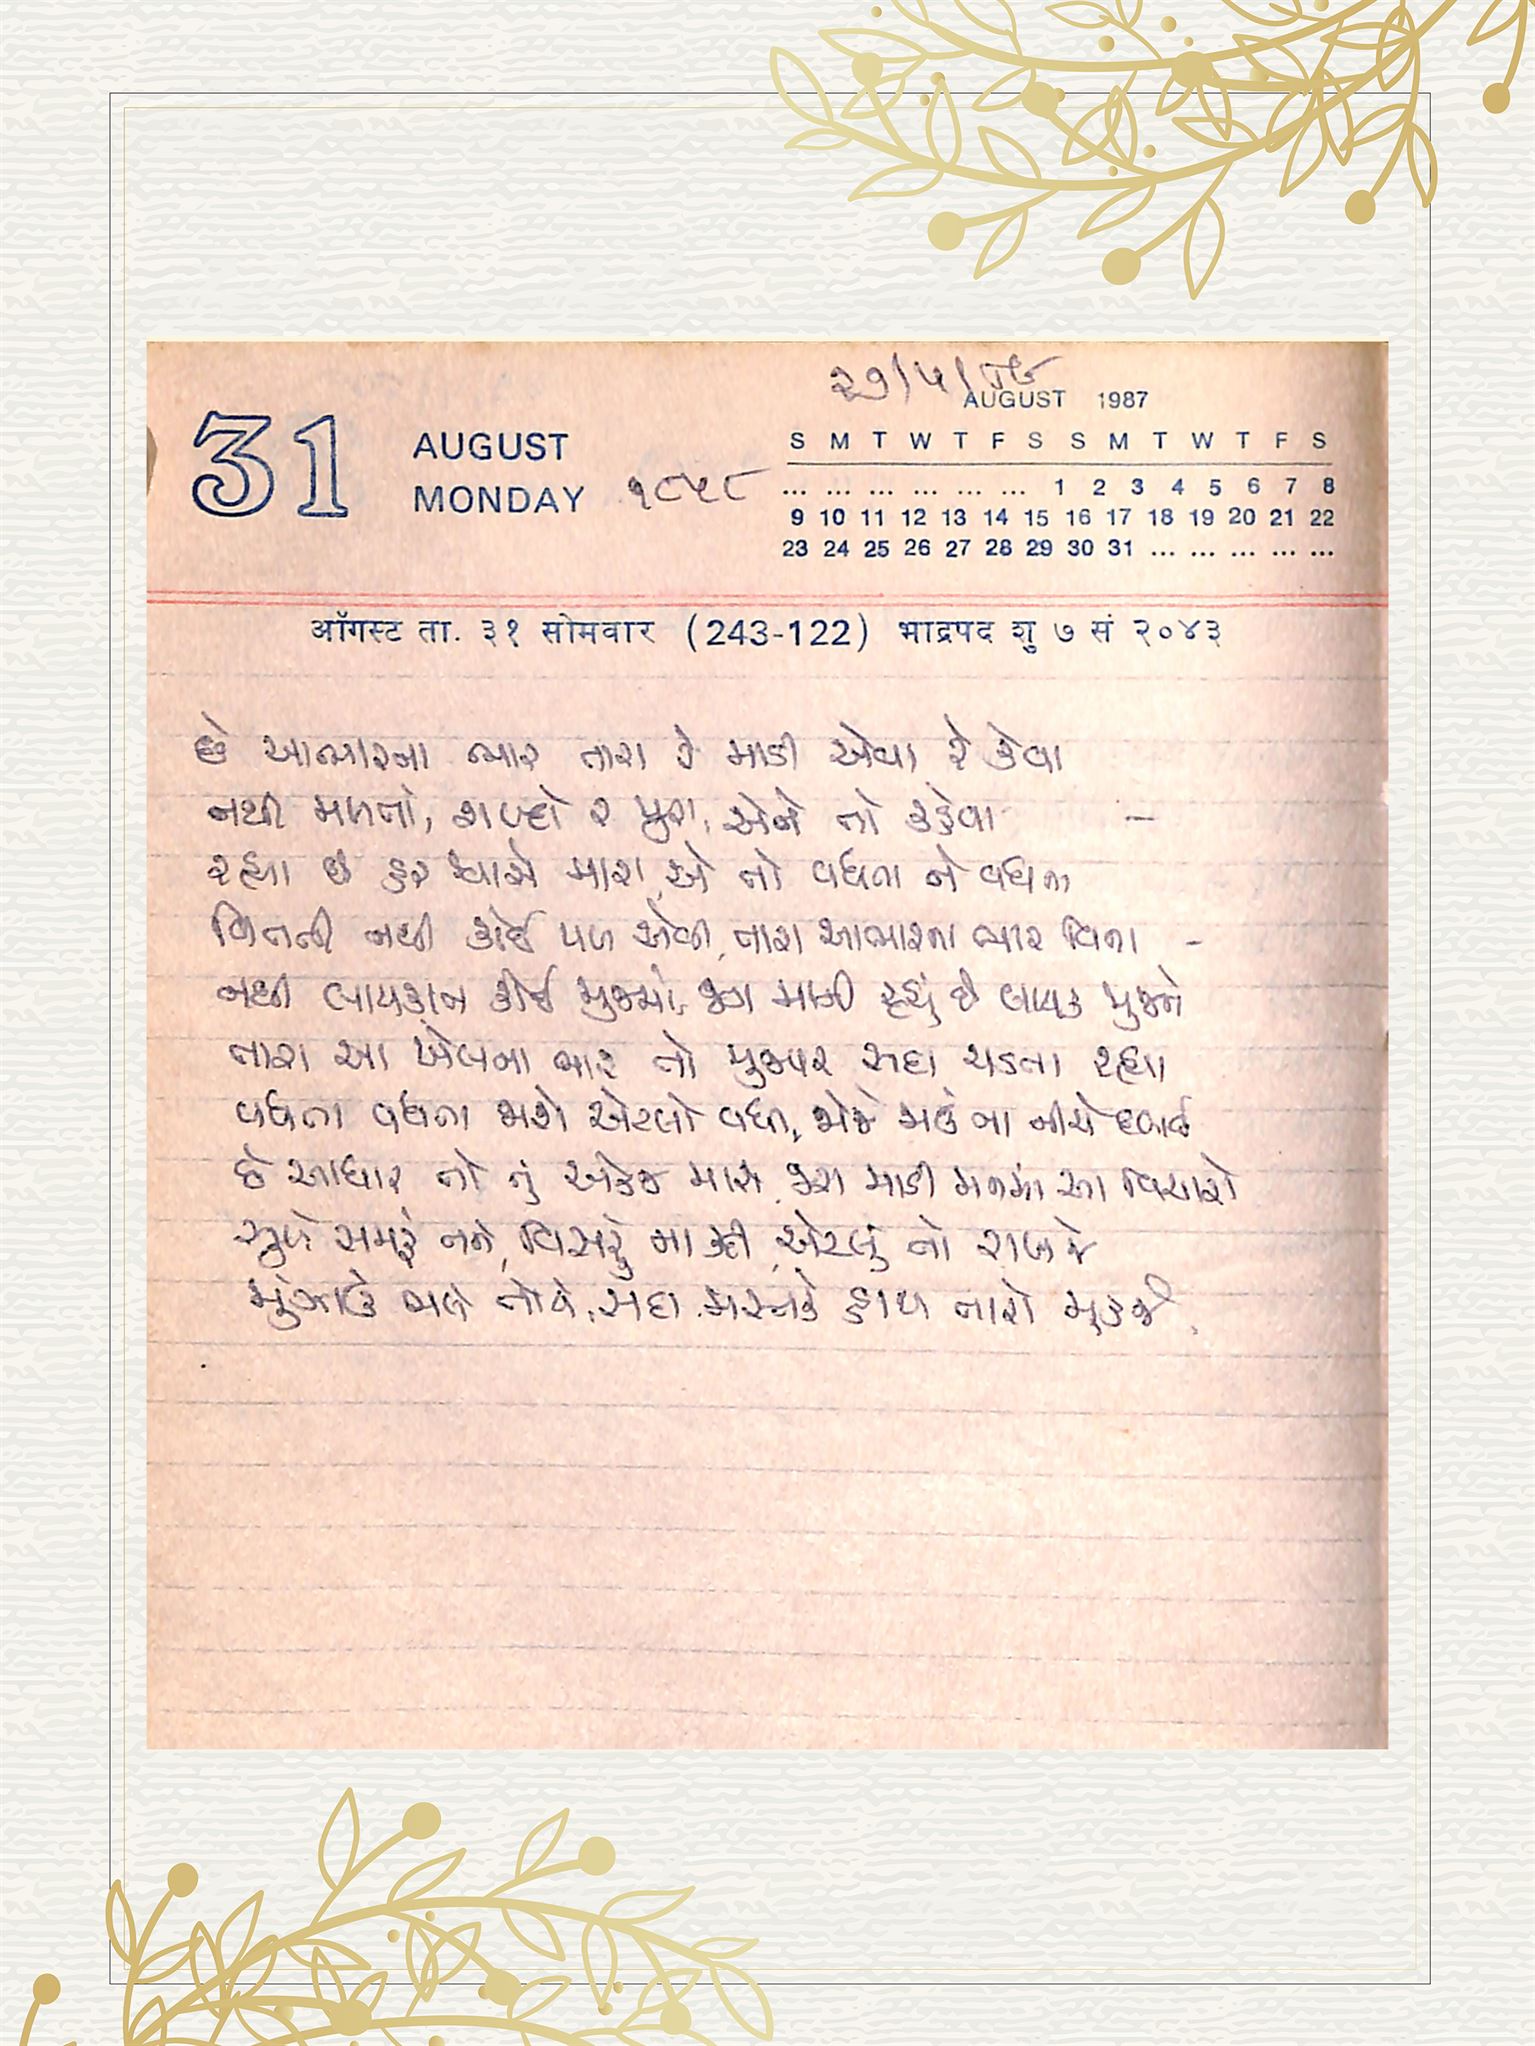 ૨૭/૫/૮૯
AUGUST 1987
31
AUGUST
MONDAY
૧૮૫૮
S M T W T F S S M T W T F S
... ... ... ... ... ... 1 2 3 4 5 6 7 8
9 10 11 12 13 14 15 16 17 18 19 20 21 22
23 24 25 26 27 28 29 30 31 ... ... ... ... ...
ऑगस्ट ता. ३१ सोमवार (243-122) भाद्रपद शु ७ सं २०४३
છે આભારના ભાર તારા રે માડી એવા રે કેવા
નથી મળતો, શબ્દો રે પુરા, એને તો કહેવા —
રહ્યા છે હર શ્વાસે મારા, એ તો વધતા ને વધતા
વિતતી નથી કોઈ પળ એવી, તારા આભારના ભાર વિના -
નથી લાયકાત કોઈ મુજમાં, જગ માની રહ્યું છે લાયક મુજને
તારા આ ખેલના ભાર તો મુજપર સદા ચડતા રહ્યા
વધતા વધતા જાશે એટલો વધી, જોજે જાઉં ના નીચે દબાઈ
છે આધાર તો તું એકજ મારો, જરા માડી મનમાં આ વિચારો
સુખે સમરૂં તને, વિસરૂં ના કદી, એટલું તો રાખજે
મુંઝાઉં ભલે તોયે, સદા મસ્તકે હાથ તારો મૂકજે.